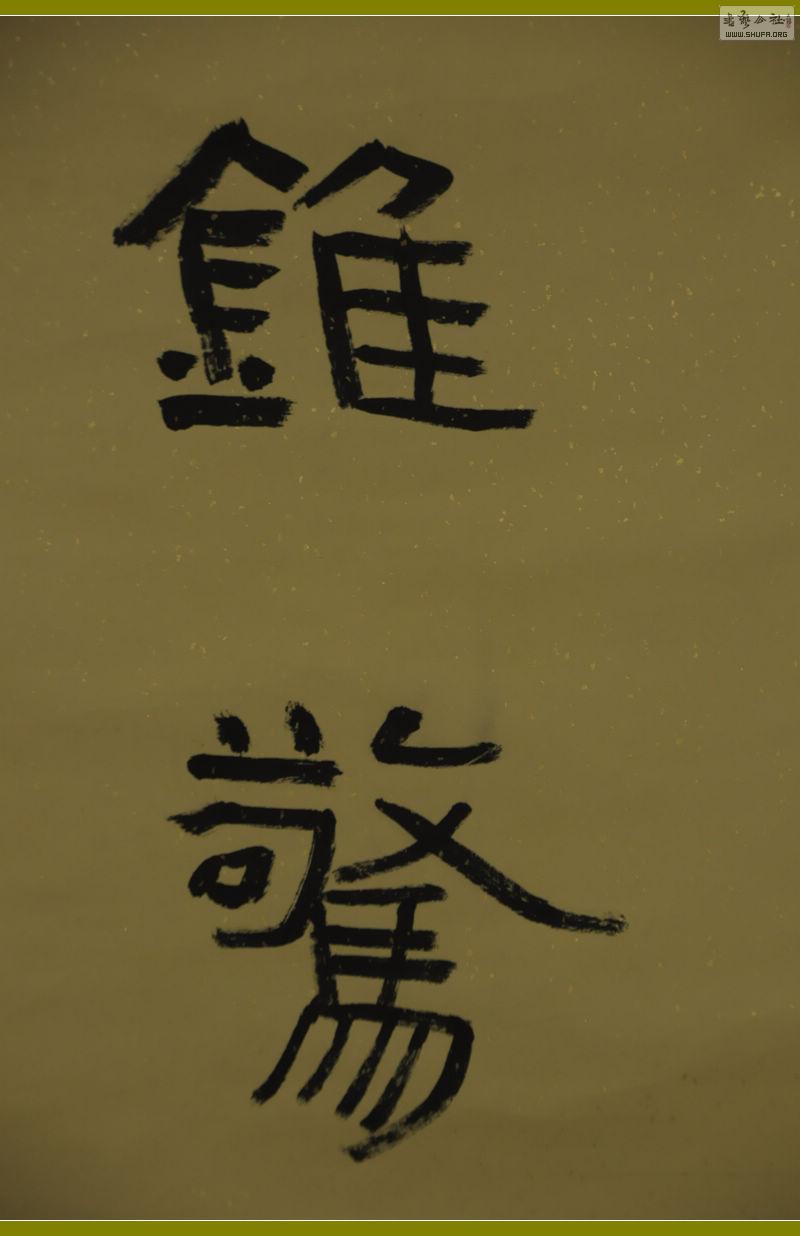 錐
驚
書藝公社
WWW.SHUFA.ORG